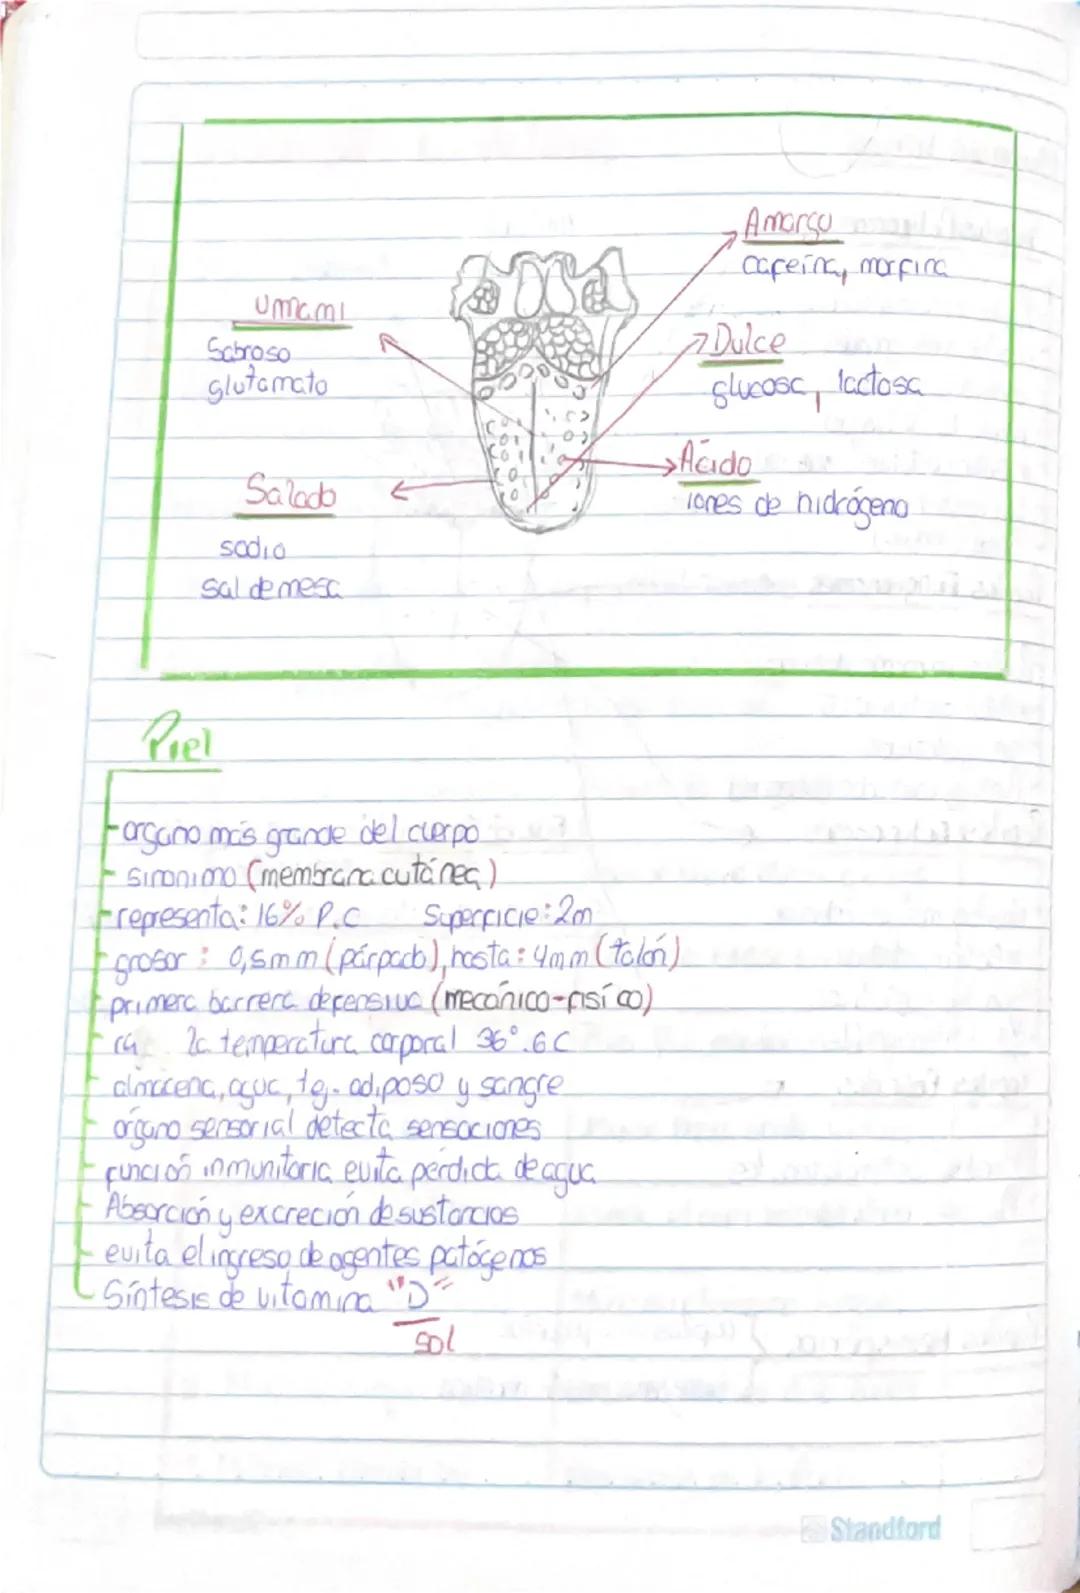 Umami
Sabroso
glutamato
Salado
sodio
sal de mesa
Amargo
cafeína, morfina
Dulce
glucosa, lactosa
Ácido
iones de hidrógeno
Piel
organo más grande del cuerpo
sinonimo (membrana cutánea)
representa: 16% P.C Superficie: 2m
grosor: 0,5mm (párpado), hasta: 4mm (talón)
primera barrera defensiva (mecánico-físico)
la temperatura corporal 36°.6C
almacena, agua, tej. adiposo y sangre
órgano sensorial detecta sensaciones
función inmunitaria evita perdida de agua
Absorción y excreción de sustancias
evita el ingreso de agentes patógenos
Síntesis de vitamina "D"
sol
Standford